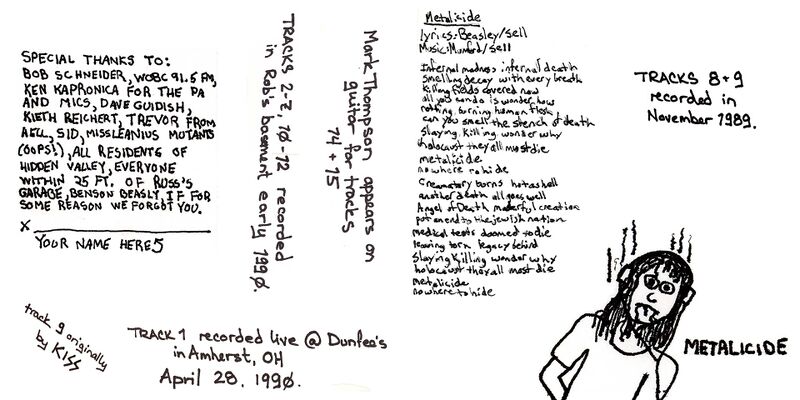 SPECIAL THANKS TO:
BOB SCHNEIDER, WOBC 91.5 FM,
KEN KAPRONICA FOR THE PA
AND MICS, DAVE GUIDISH,
KIETH REICHERT, TREVOR FROM
AELL, SID, MISSLEANIUS MUTANTS
(OOPS!), ALL RESIDENTS OF
HIDDEN VALLEY, EVERYONE
WITHIN 25 FT. OF RUSS'S
GARAGE, BENSON BEASLY, IF FOR
SOME REASON WE FORGOT YOU.
X
YOUR NAME HERE
TRACKS 2-7, 10-12 recorded
in Rob's basement early 1990.
Mark Thompson appears on
guitor for tracks
14 + 15
Metalicide
lyrics: Beasley/Sell
Music: Mumford/Sell
Infernal madness infernal death
smelling decay with every breath
killing fields covered now
all you can do is wonder how
nothing burning human flesh
can you smell the stench of death
Slaying killing wonder why
holocaust they all must die
metalicide
nowhere to hide
Creamatory burns hot as hell
another death all goes well
Angel of Death masterful creation
put an end to the jewish nation
medical tests doomed to die
leaving torn legacy behind
Slaying killing wonder why
holocaust they all most die
metalicide
nowhere to hide
TRACKS 8+9
recorded in
November 1989.
track 9 originally
by KISS
TRACK 1 recorded live @ Dunfea's
in Amherst, OH
April 28, 1990.
METALICIDE